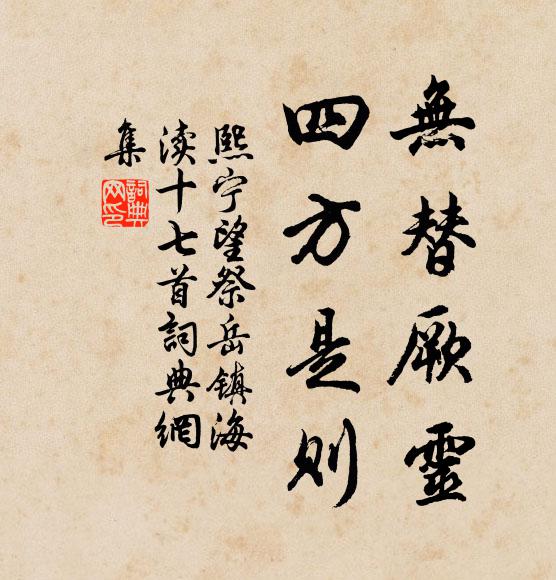 無替厥靈
四方是则
熙宁望祭岳镇海
渎十七首詞典網
集
詞典
网印